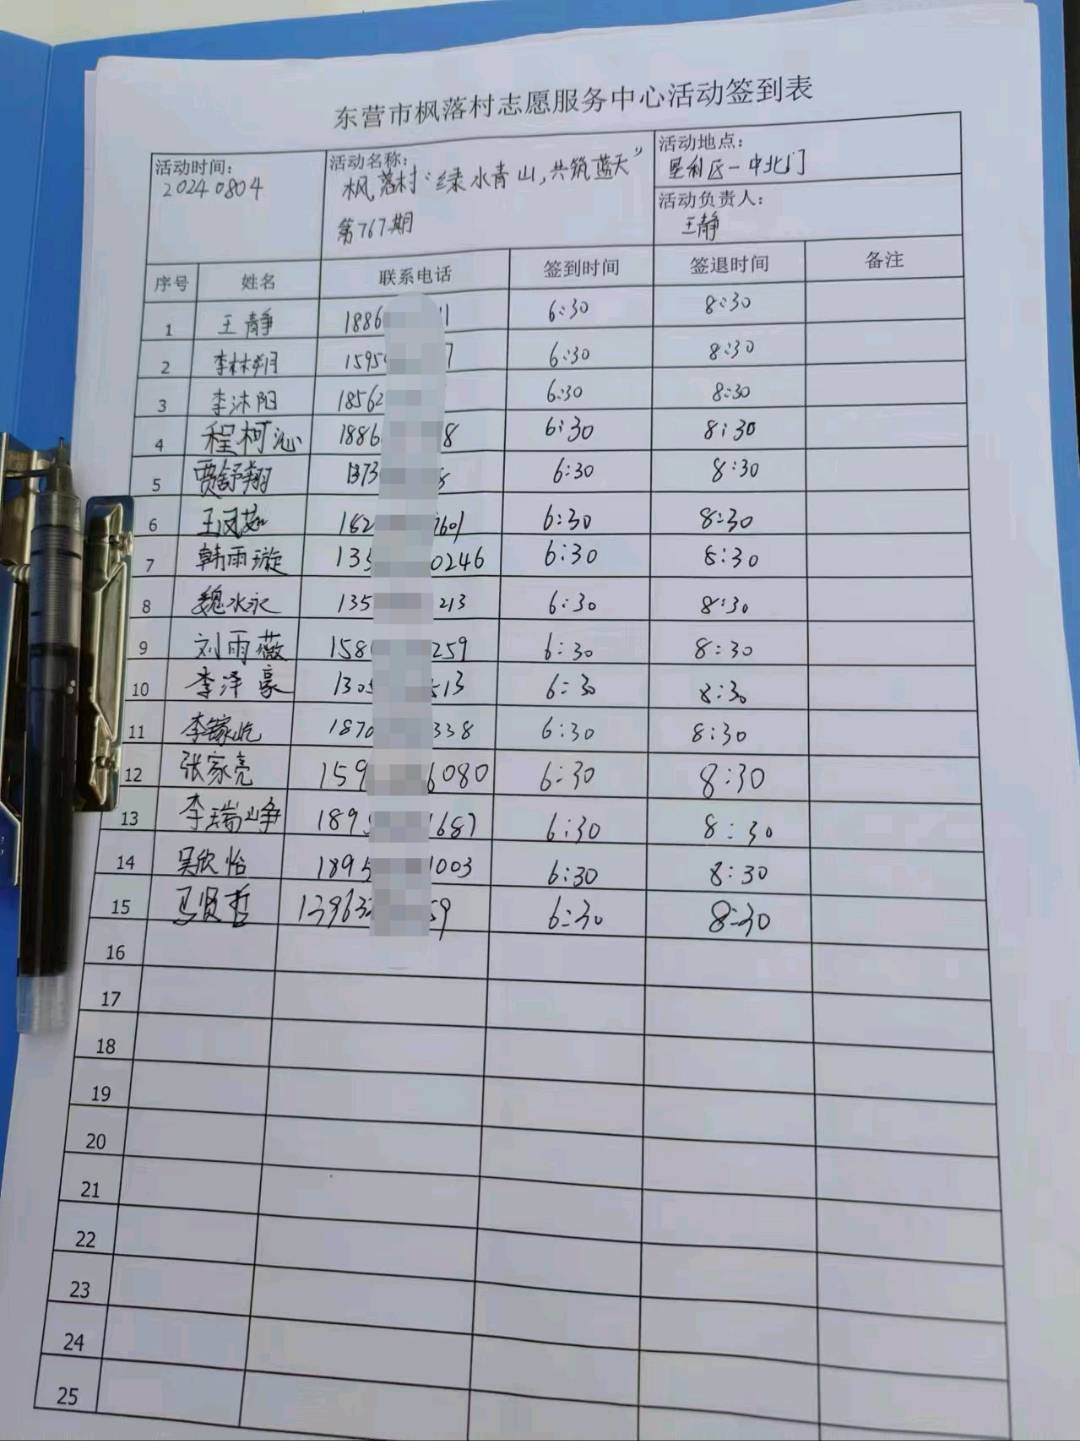 东营市枫落村志愿服务中心活动签到表
活动时间: 活动名称: 活动地点:
20240804 枫落村“绿水青山,共筑蓝天” 垦利区一中北门
第767期 活动负责人:
王静
序号 姓名 联系电话 签到时间 签退时间 备注
1 王静 1886 11 6:30 8:30
2 李林翔 1595 7 6:30 8:30
3 李沐阳 18562 6:30 8:30
4 程柯沁 1886 8 6:30 8:30
5 贾舒翔 1373 6:30 8:30
6 王凤茹 182 7601 6:30 8:30
7 韩雨璇 135 0246 6:30 8:30
8 魏水永 135 213 6:30 8:30
9 刘雨薇 158 259 6:30 8:30
10 李泽豪 130 513 6:30 8:30
11 李镓屹 1870 338 6:30 8:30
12 张家亮 159 6080 6:30 8:30
13 李瑞峥 189 1687 6:30 8:30
14 吴欣怡 1895 1003 6:30 8:30
15 马贤哲 13963 59 6:30 8:30
16
17
18
19
20
21
22
23
24
25